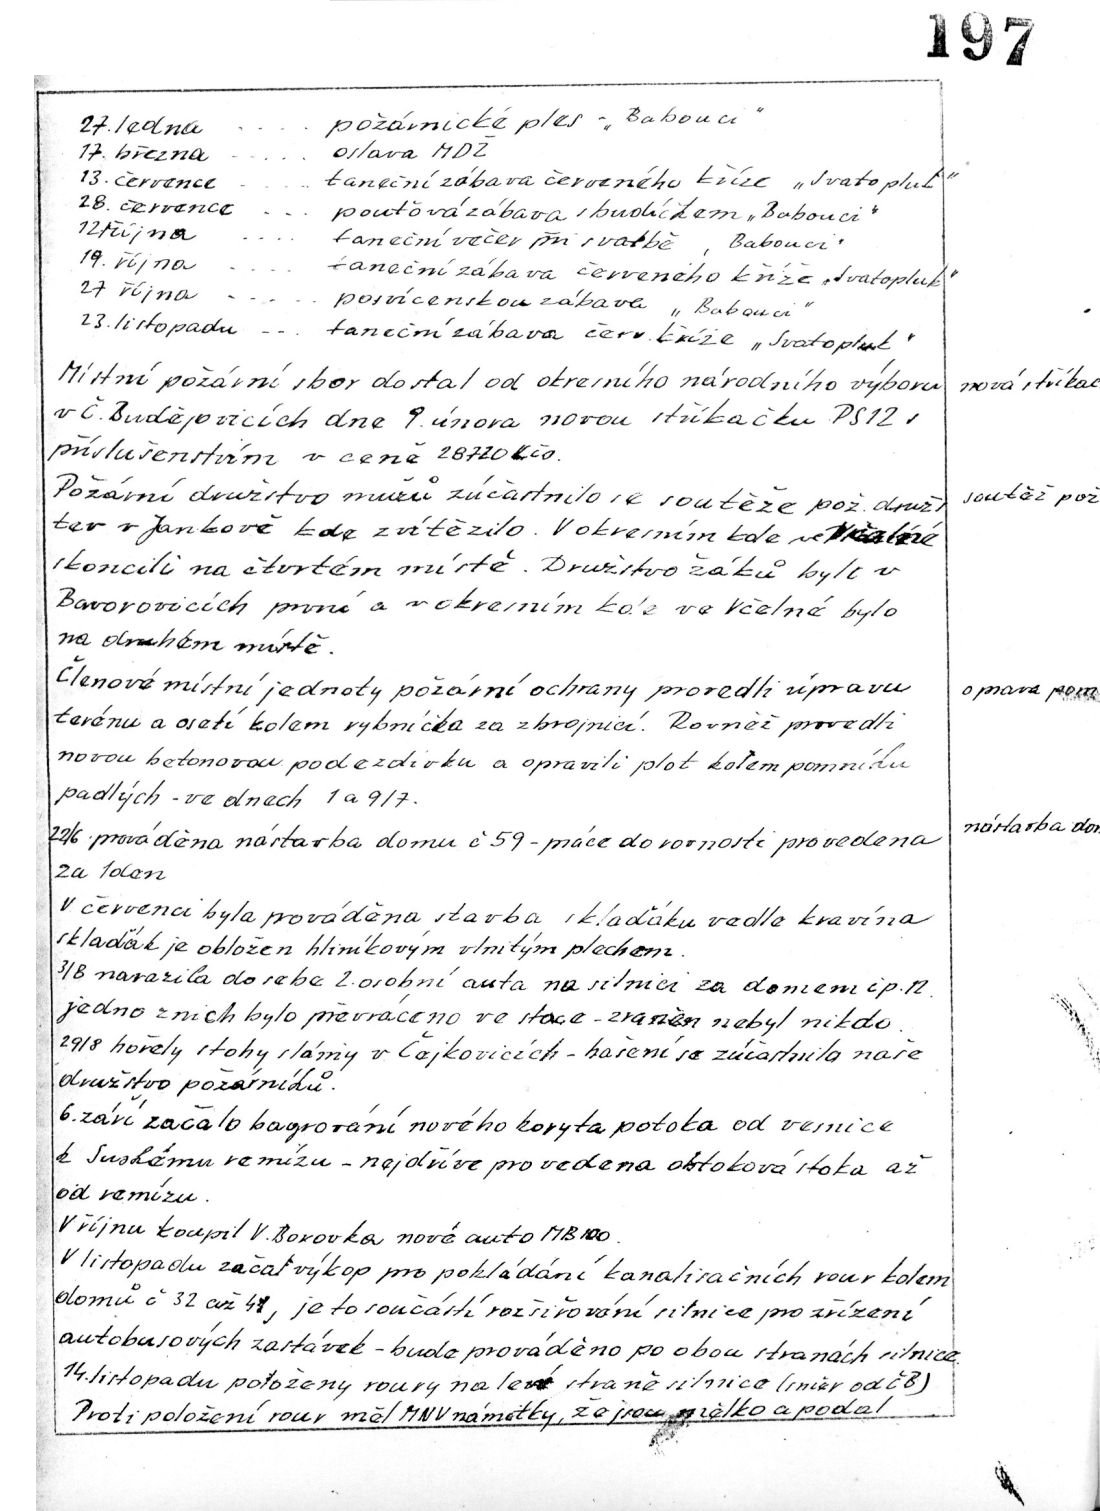 197
27. ledna .... požárnické ples - „Babouci“
17. března ..... oslava MDŽ
13. července .... taneční zábava červeného kříže „Svatopluk“
28. července ... pouťová zábava s budíčkem „Babouci“
12 října .... taneční večer při svatbě „Babouci“
19. října .... taneční zábava červeného kříže „Svatopluk“
27 října ..... posvícenskou zábava „Babouci“
23. listopadu --- taneční zábava červ. kříže „Svatopluk“
Místní požární sbor dostal od okresního národního výboru nová stříkač
v Č. Budějovicích dne 9. února novou stříkačku PS12 s
příslušenstvím v ceně 28720 Kčs.
Požární družstvo mužů zúčastnilo se soutěže pož. družs soutěž pož
tev v Jankově kde zvítězilo. V okresním kole ve Včelné
skoncili na čtvrtém místě. Družstvo žáků bylo v
Bavorovicích první a v okresním kole ve Včelné bylo
na druhém místě.
Členové místní jednoty požární ochrany provedli úpravu oprava pom
terénu a osetí kolem rybníčka za zbrojnicí. Rovněž provedli
novou betonovou podezdívku a opravili plot kolem pomníku
padlých - ve dnech 1 a 9/7.
22/6 prováděna nástavba domu č 59 - práce dovornosti provedena nástavba dom
za 1 den
V červenci byla prováděna stavba skladáku vedle kravína
skladák je obložen hliníkovým vlnitým plechem.
3/8 narazila do sebe 2. osobní auta na silnici za domem čp. 12.
jedno z nich bylo převráceno ve stoce - zraněn nebyl nikdo.
29/8 hořely stohy slámy v Čejkovicích - hašení se zúčastnilo naše
družstvo požárníků.
6. září začalo bagrování nového koryta potoka od vesnice
k Suskému remízu - nejdříve provedena obtoková stoka až
od remízu.
V říjnu koupil V. Borovka nové auto MB 100.
V listopadu začal výkop pro pokládání kanalisačních rour kolem
domů č 32 až 41, je to součástí rozšiřování silnice pro zřízení
autobusových zastávek - bude prováděno po obou stranách silnice.
14. listopadu položeny roury na levé straně silnice (směr od ČB)
Proti položení rour měl MNV námitky, že jsou mělko a podal